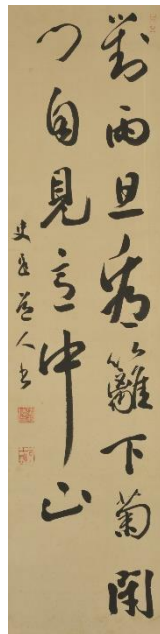 對雨且看籬下菊開
門自見意中山
道人書